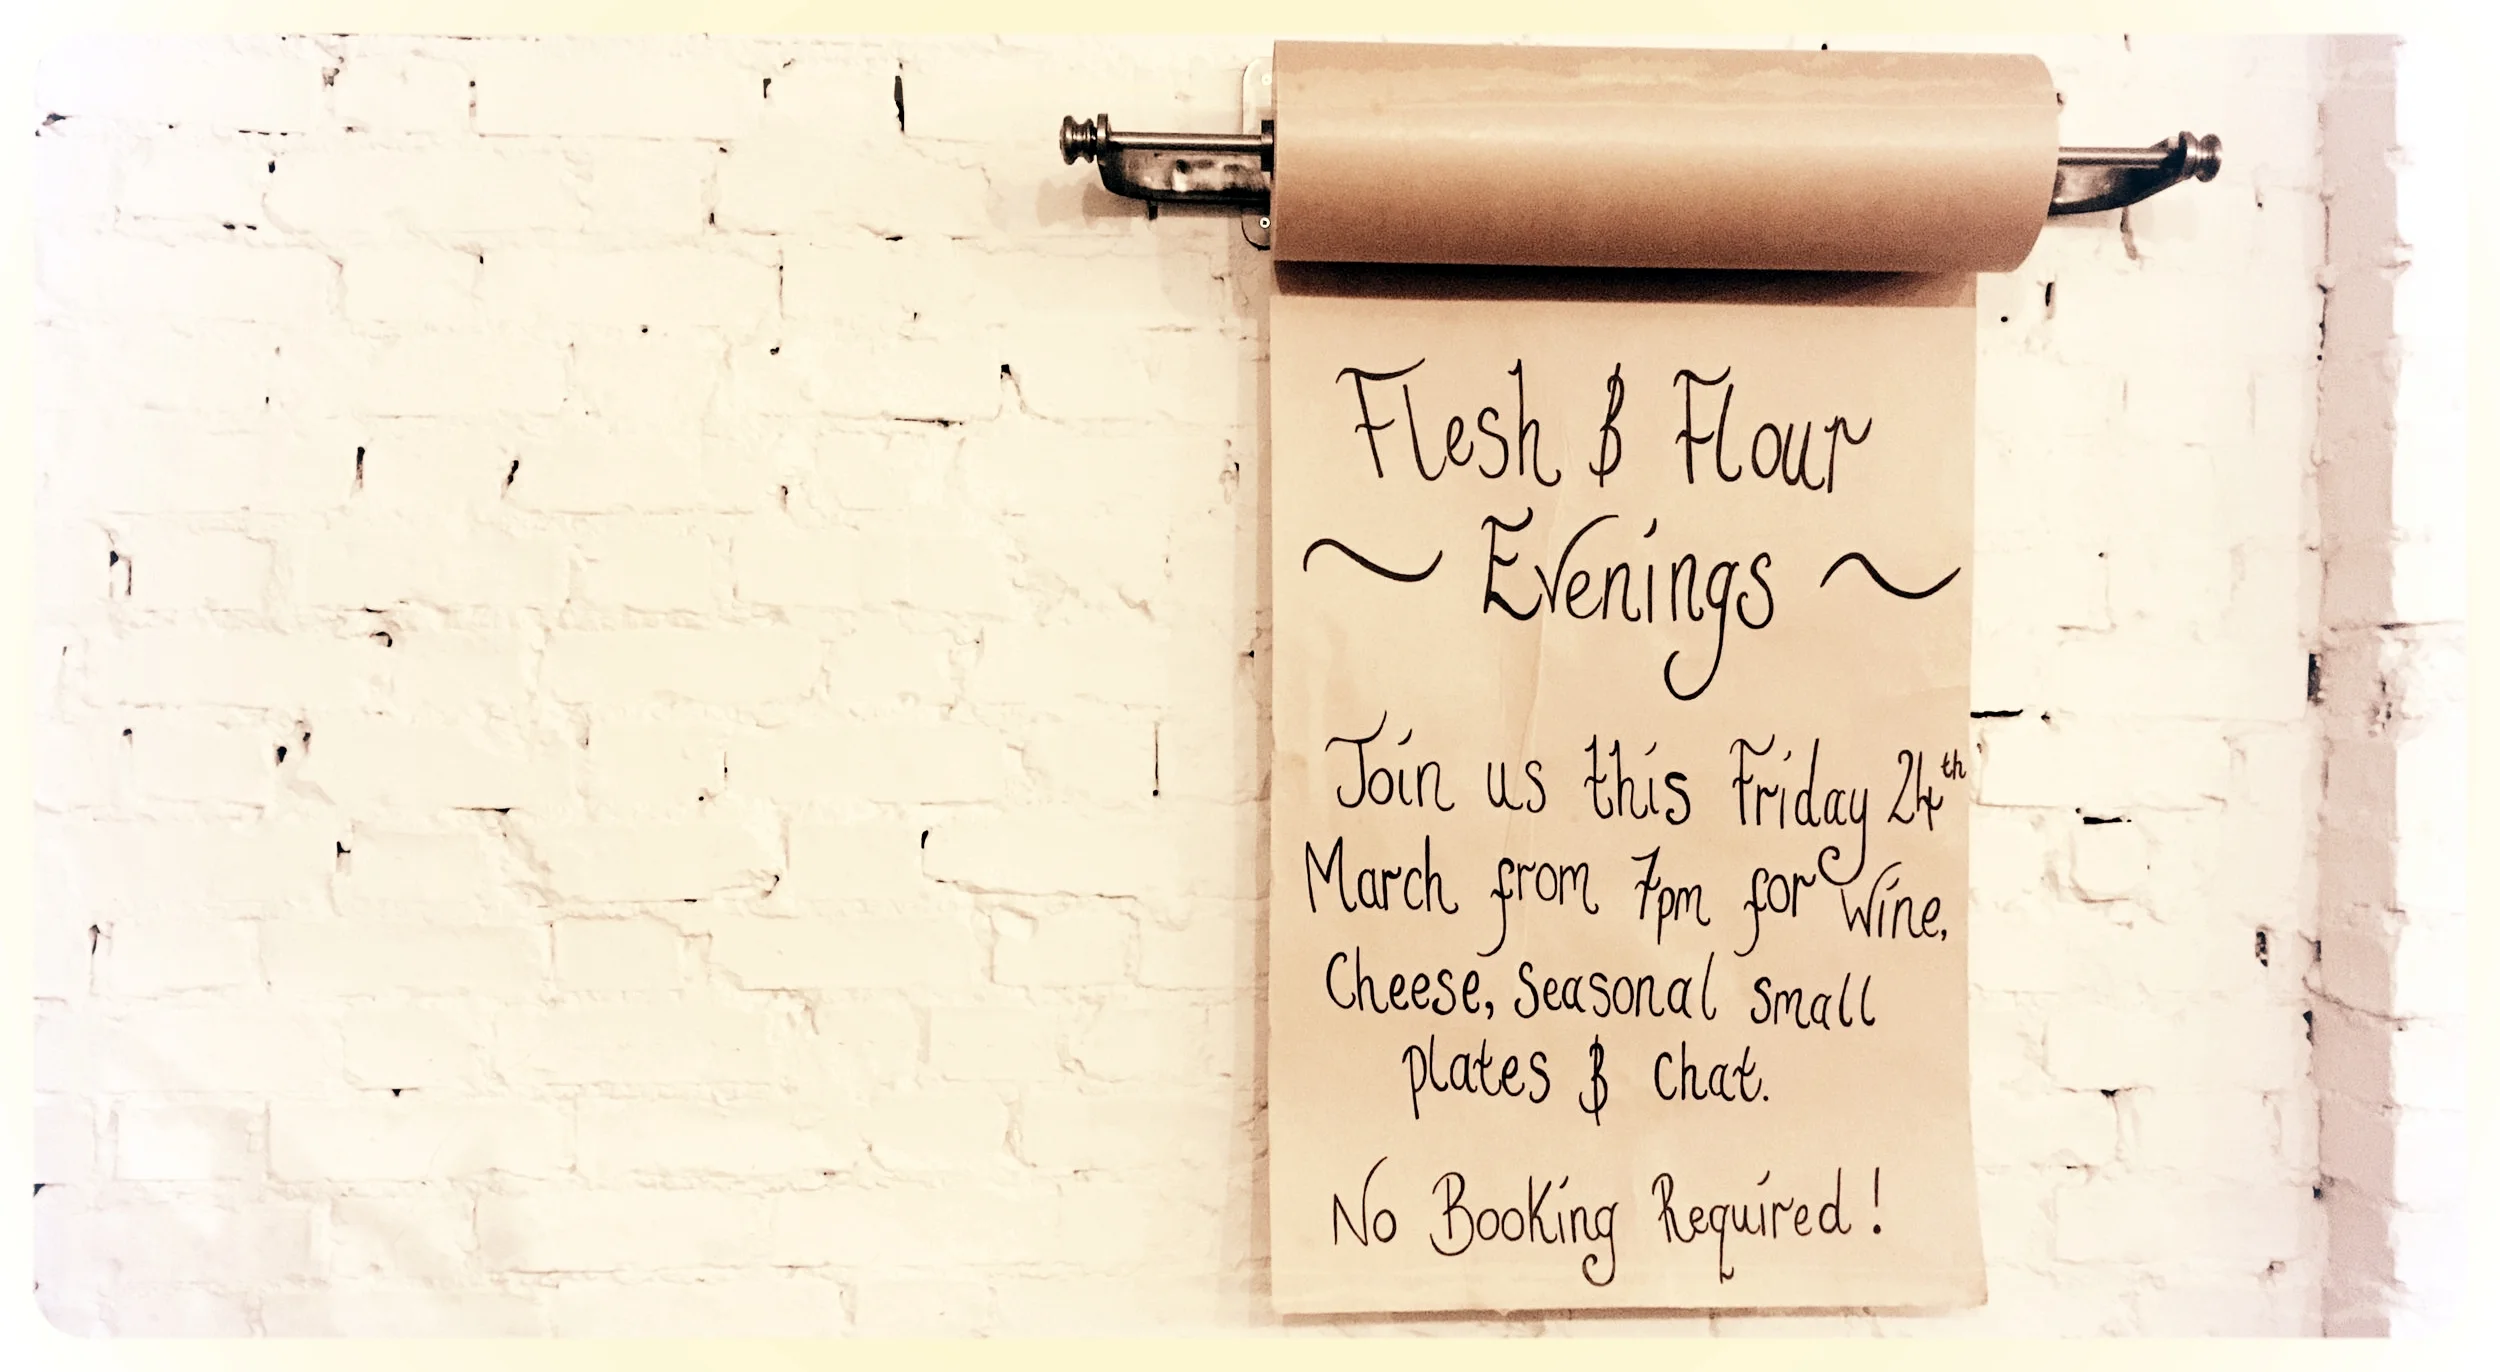 Flesh & Flour
~ Evenings ~
Join us this Friday 24th
March from 7pm for Wine,
Cheese, Seasonal Small
plates & Chat.
No Booking Required!